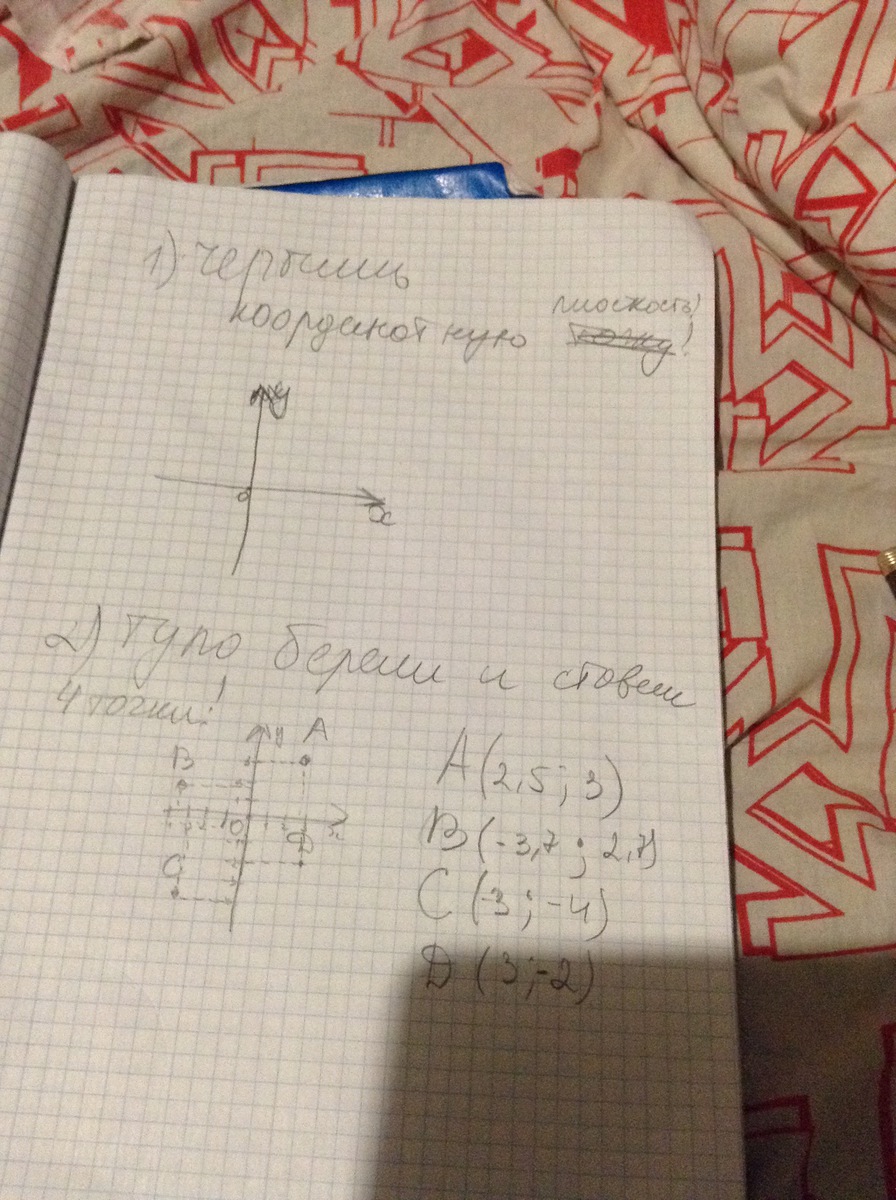 1) Чертишь
плоскость!
координатную точку!
y
0
x
2) Тупо берёш и ставеш
4 точки!
y
A
B
A (2,5 ; 3)
0
x
B (-3,7 ; 2,7)
D
C
C (-3 ; -4)
D (3 ; -2)